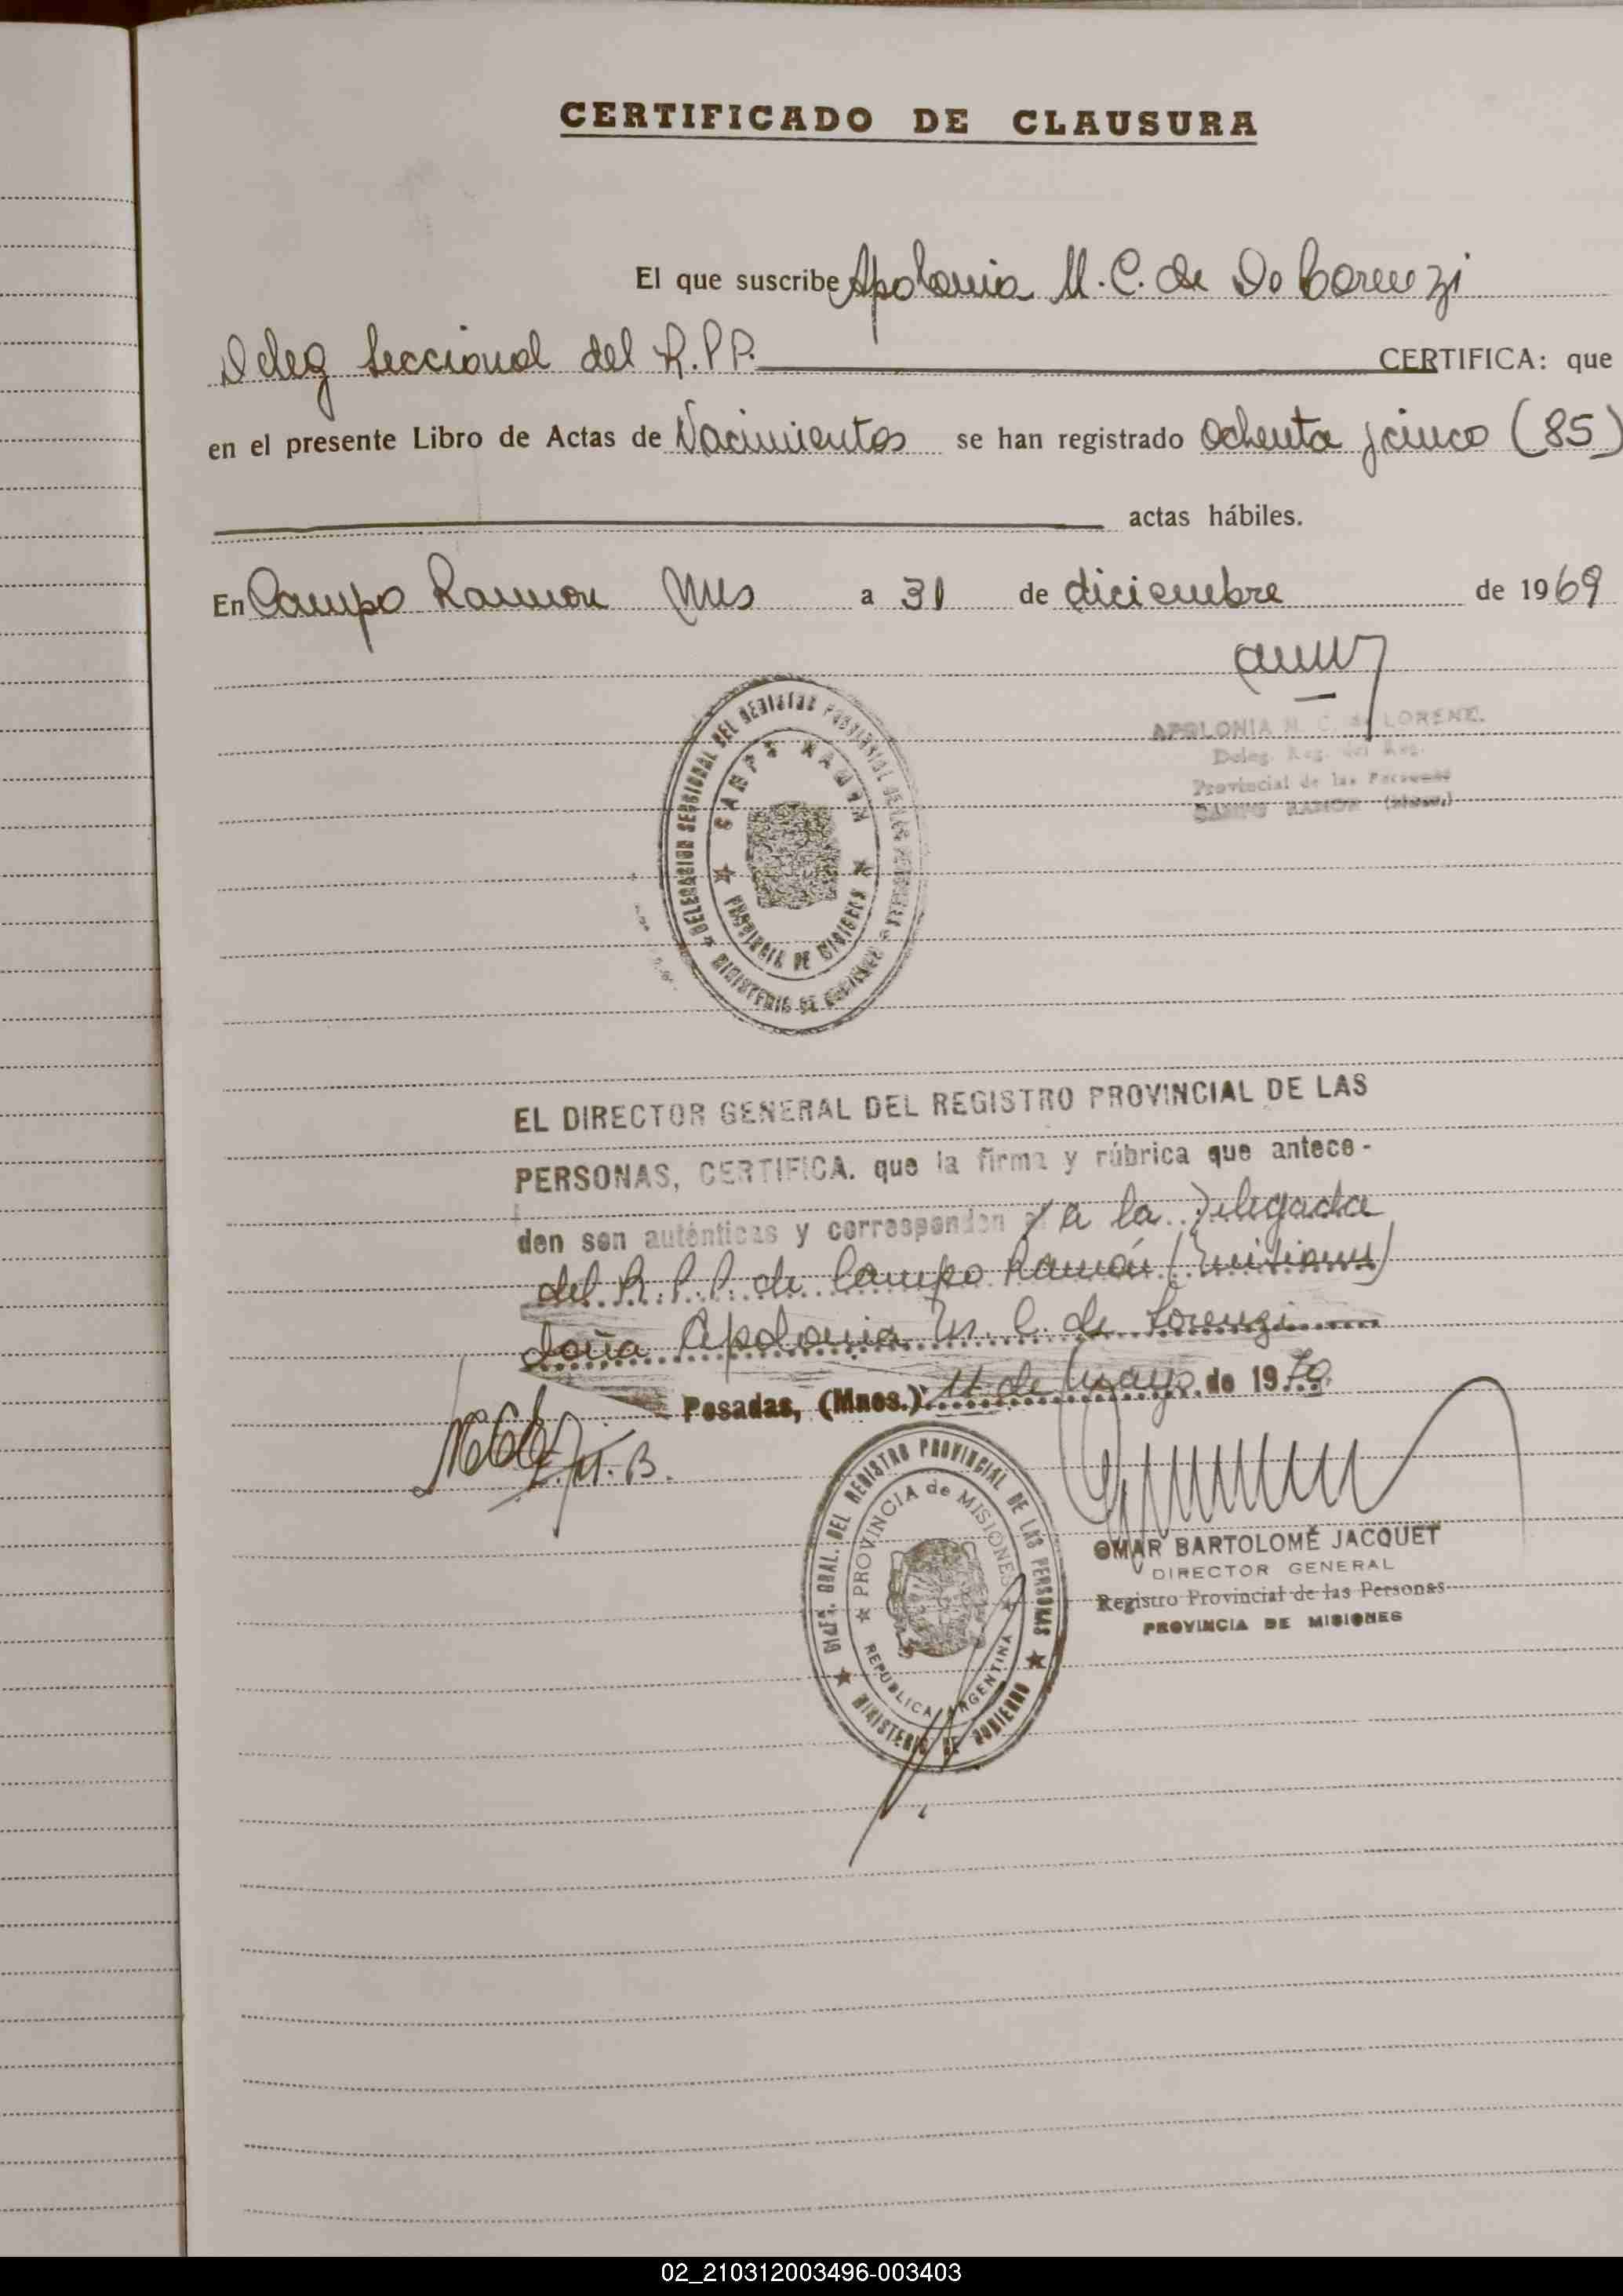 CERTIFICADO DE CLAUSURA
El que suscribe Apolonia M. C. de Do Lorenzi
Deleg Seccional del R.P.P. CERTIFICA: que
en el presente Libro de Actas de Nacimientos se han registrado Ochenta y cinco (85)
actas hábiles.
En Campo Ramon Mnes a 31 de diciembre de 1969
APOLONIA M. C. de LORENZ.
Deleg. Reg. del Reg.
Provincial de las Personas
CAMPO RAMON (Mnes.)
DELEGACION SECCIONAL DEL REGISTRO PROVINCIAL DE LAS PERSONAS
CAMPO RAMON
PROVINCIA DE MISIONES
MINISTERIO DE GOBIERNO
EL DIRECTOR GENERAL DEL REGISTRO PROVINCIAL DE LAS
PERSONAS, CERTIFICA. que la firma y rúbrica que antece-
den son auténticas y corresponden a la Delegada
del R.P.P. de Campo Ramón (Misiones)
doña Apolonia M. C. de Lorenzi
Posadas, (Mnes.) 11 de Mayo de 1970.
M.B.
DIREC. GRAL. DEL REGISTRO PROVINCIAL DE LAS PERSONAS
PROVINCIA de MISIONES
REPUBLICA ARGENTINA
MINISTERIO DE GOBIERNO
OMAR BARTOLOMÉ JACQUET
DIRECTOR GENERAL
Registro Provincial de las Personas
PROVINCIA DE MISIONES
02_210312003496-003403